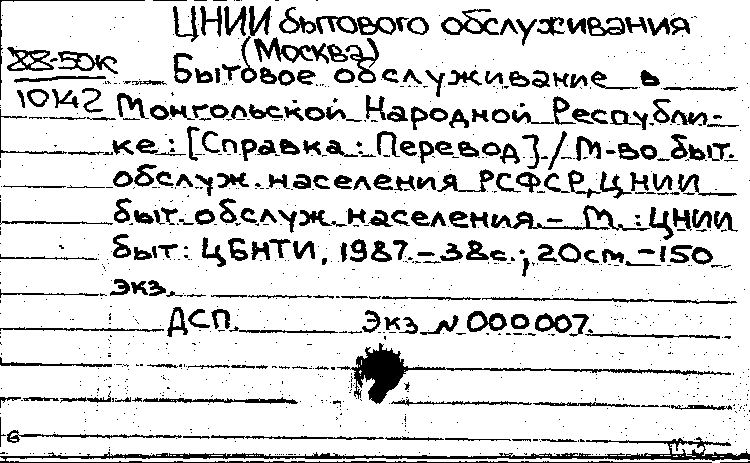 ЦНИИ бытового обслуживания
(Москва)
88-50к
Бытовое обслуживание в
10142 Монгольской Народной Республи-
ке : [Справка : Перевод] / М-во быт.
обслуж. населения РСФСР, ЦНИИ
быт. обслуж. населения. - М. : ЦНИИ
быт : ЦБНТИ, 1987. - 38с. ; 20см. - 150
экз.
ДСП. Экз N 000007.
6
т. 3